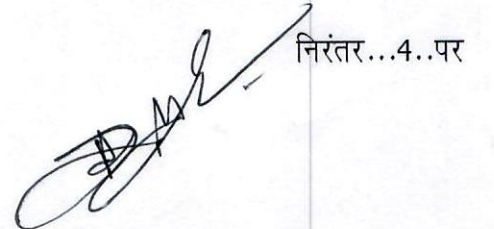 निरंतर...4..पर